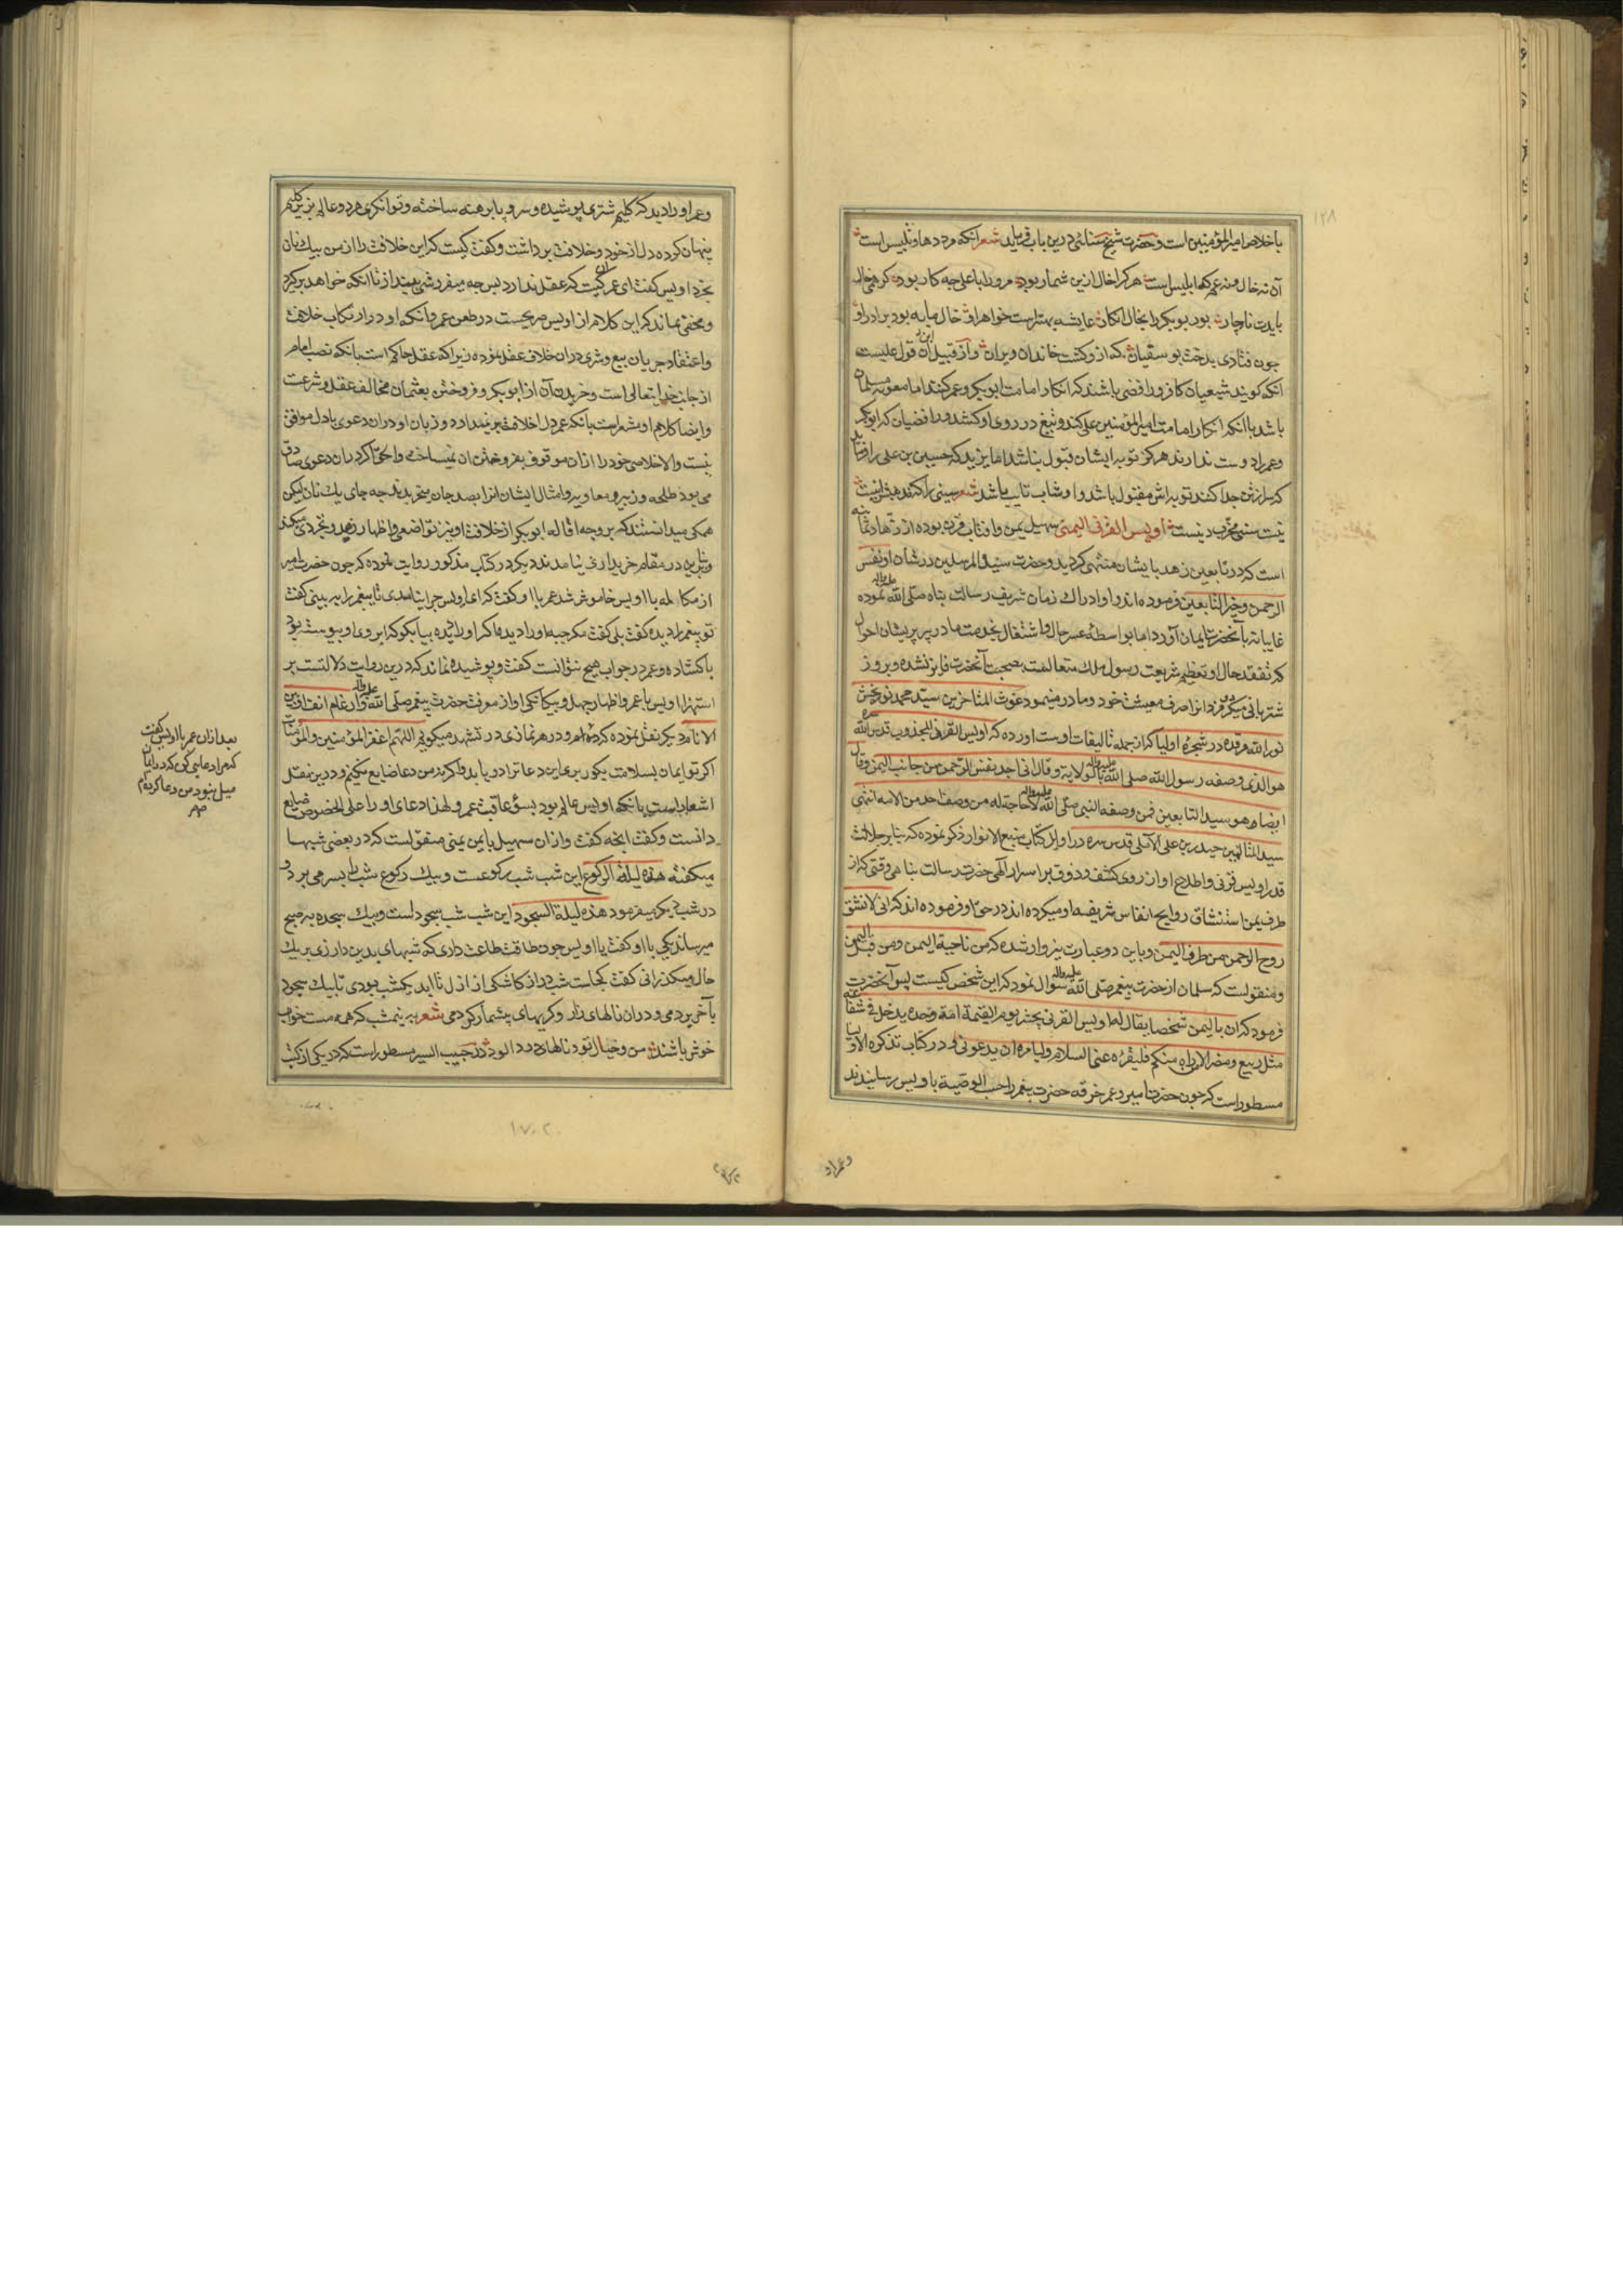 ۱۲۸
باخلاص امیرالمؤمنین است و حضرت شیخ سنائی درین باب فرماید شعر انکه مردد هاو تلبیس است
آن نه خال و نه عم که ابلیس است هرکرا خال ازین شمار بود مرورا با علی چه کار بود کر همی خال
بایدت ناچار پور بوبکر را بخال انکار عایشه بهتر است خواهر او خال ما به بود برادر او
چون فتادی بدخت بوسفیان که ازو کشت خاندان ویران و از قبیل آن قول علیست
انکه کویند شیعیان کافر و رافضی باشند که انکار امامت ابوبکر و عمر کنند اما معویه مسلمان
باشد باانکه انکار امامت امیرالمؤمنین علی کند و تیغ در روی او کشد و رافضیان که ابوبکر
وعمر را دوست ندارند هرکز توبه ایشان قبول نباشد اما یزید که حسین بن علی را فرماید
که سر از تن جدا کنند توبه اش مقبول باشد و او شاب تایب باشد شعر
نیست سنی مخرب دینست اویس القرنی الیمنی سهیل یمن و افتاب قرن بوده از زهاد ثمانیه
است که در تابعین زهد بایشان منتهی کردید و حضرت سید المرسلین در شان او نفس
الرحمن و خیر التابعین فرموده اند و او ادراك زمان شریف رسالت پناه صلی الله علیه واله نموده
غایبانه بآنحضرت ایمان آورد اما بواسطه عسر حال و اشتغال بخدمت مادر پیر پریشان احوال
که تفقد حال او تعظیم شریعت رسول ملك متعالست بصحبت آنحضرت فایز نشده و بروز
شتربانی میکرد و مزد انرا صرف معیشت خود و مادر مینمود غوث المتاخرین سید محمد نوربخش
نورالله مرقده در شجره اولیا که از جمله تالیفات اوست اورده که اویس القرنی المجذوب قدس الله سره
هو الذی وصفه رسول الله صلی الله علیه واله بالولایة و قال انی اجد نفس الرحمن من جانب الیمن وقال
ایضا هو سید التابعین فمن وصفه النبی صلی الله علیه واله لا حاجة له من وصف احد من الامه انتهی
سید المتالهین حیدر بن علی الآملی قدس سره در اوایل کتاب منبع الانوار ذکر نموده که بنابر جلالت
قدر اویس قرنی و اطلاع او از روی کشف و ذوق بر اسرار الهی حضرت رسالت پناهی وقتی که از
طرف یمن استنشاق روایح انفاس شریفه او میکرده اند در حق او فرموده اند که انی لانشق
روح الرحمن من طرف الیمن و باین دو عبارت نیز وارد شده که من ناحیة الیمن و من قبل الیمن
و منقولست که سلمان از حضرت پیغمبر صلی الله علیه واله سؤال نمود که این شخص کیست پس آنحضرت
فرمود که ان بالیمن شخصا یقال له اویس القرنی یحشر یوم القیمة امة وحده یدخل فی شفاعته
مثل ربیع و مضر الا من راه منکم فلیقره عنی السلام و لیامره ان یدعو لی و در کتاب تذکره الاولیا
مسطور است که چون حضرت امیر و عمر خرقه حضرت پیغمبر را حسب الوصیة باویس رسانیدند
وعمر او را
وعمر او را دید که کلیم شتری پوشیده و سر و پا برهنه ساخته و توانکری هر دو عالم بزیر کلیم
پنهان کرده دل از خود و خلافت برداشت و کفت کیست که این خلافت را از من بیك نان
بخرد اویس کفت ای عمر آن کیست که عقل ندارد پس چه میفروشی بینداز تا انکه خواهد برکیرد
و مخفی نماند که این کلام از اویس صریحست در طعن عمر و آنکه او در ارتکاب خلافت
و اعتقاد جریان بیع و شری در ان خلاف عقل نموده زیرا که عقل حاکم است بانکه نصب امام
از جانب خدایتعالی است و خریدن آن از ابوبکر و فروختن بعثمان مخالف عقل و شرعت
و ایضا کلام او مشعر است بانکه عمر دل از خلافت برنمیدارد و زبان او در ان دعوی با دل موافق
نیست والا خلاصی خود را از ان موقوف بفروختن ان نمیساخت و الحق اکر در ان دعوی صادق
می بود طلحه و زبیر و معاویه و امثال ایشان انرا بصد جان میخریدند چه جای یك نان لیکن
همکی میدانستند که بر وجه اقاله ابوبکر از خلافت او نیز تواضعی و اظهار زهد و تجردی میکند
و بنابرین در مقام خریداری نیامدند دیکر در کتاب مذکور روایت نموده که چون حضرت امیر
از مکالمه با اویس خاموش شد عمر با او کفت که ای اویس چرا نیامدی تا پیغمبر را به بینی کفت
تو پیغمبر را دیده کفت بلی کفت مکر جبه او را دیده اکر او را دیده بیا بکو که ابروی او پیوسته بود
یا کشاده و عمر در جواب هیچ نتوانست کفت و پوشیده نماند که درین روایت دلالتست بر
استهزا اویس با عمر و اظهار جهل و بیکانکی او از معرفت حضرت پیغمبر صلی الله علیه واله و ارغام انف
الانام دیکر نقل نموده که در هر نمازی در تشهد میکویم اللهم اغفر للمؤمنین والمؤمنات
اکر تو ایمان بسلامت بکور بری این دعا ترا دریابد و اکر نه من دعا ضایع نکنم و درین نقل
اشعار است بانکه اویس عالم بود بسوء عاقبت عمر و لهذا دعای او را علی الخصوص ضایع
دانست و کفت انچه کفت و از ان سهیل یایمن یمنی منقولست که در بعضی شبها
میکفته هذه لیلة الرکوع این شب شب رکوعست و بیك رکوع شب را بسر می برد و
در شب دیکر میفرمود هذه لیلة السجود این شب شب سجود است و بیك سجده به صبح
میرساند یکی با او کفت یا اویس چون طاقت طاعت داری که شبهای بدین درازی بر یك
حال میکذرانی کفت کجاست شب دراز کاشکی از ازل تا ابد یکشب بودی تا بیك سجود
بآخر بردمی و در ان نالهای زار و کریهای بیشمار کردمی شعر نیمشب که همه مست خواب
خوش باشند من و خیال تو و نالهای درد الود در حبیب السیر مسطور است که در یکی از کتب
بعد از ان عمر با اویس کفت
که مرا دعایی کن کفت در ایمان
میل نبود من دعا کرده ام